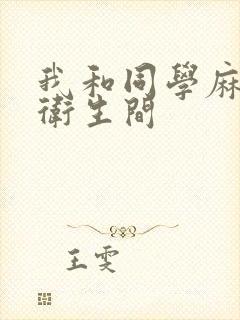 我和同學麻
衛生間
王雯